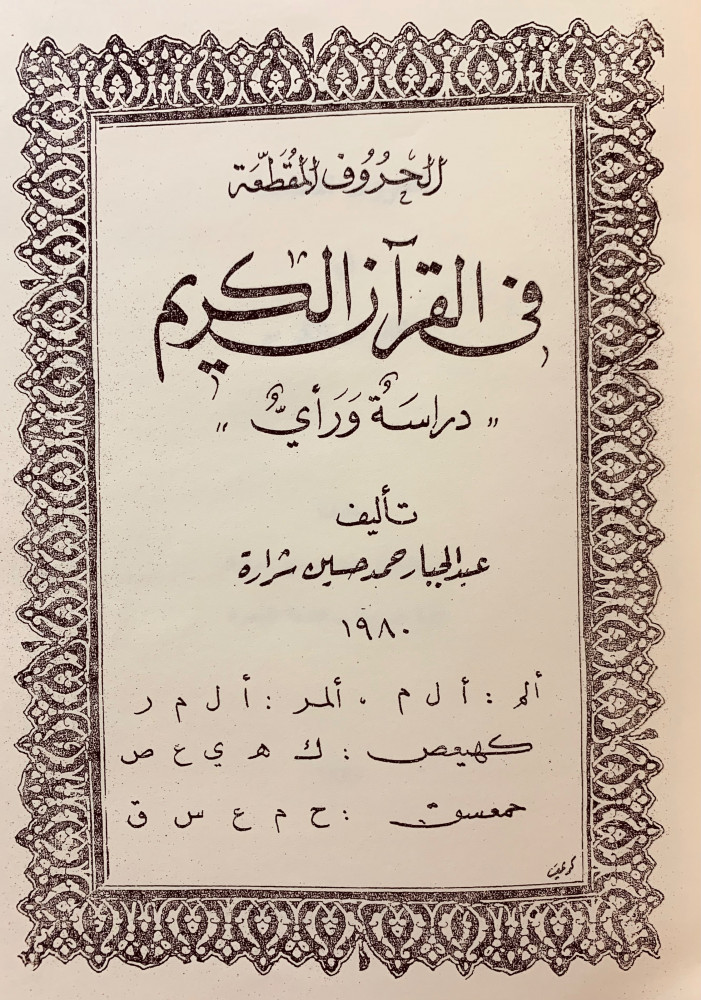 الحُرُوف المُقَطَّعَة
في القرآن الكريم
"دراسَةٌ وَرَأيٌ"
تأليف
عبدالجبار حمد حسين شرارة
١٩٨٠
ألم : أ ل م ، ألمر : أ ل م ر
كهيعص : ك ه ي ع ص
حمعسق : ح م ع س ق